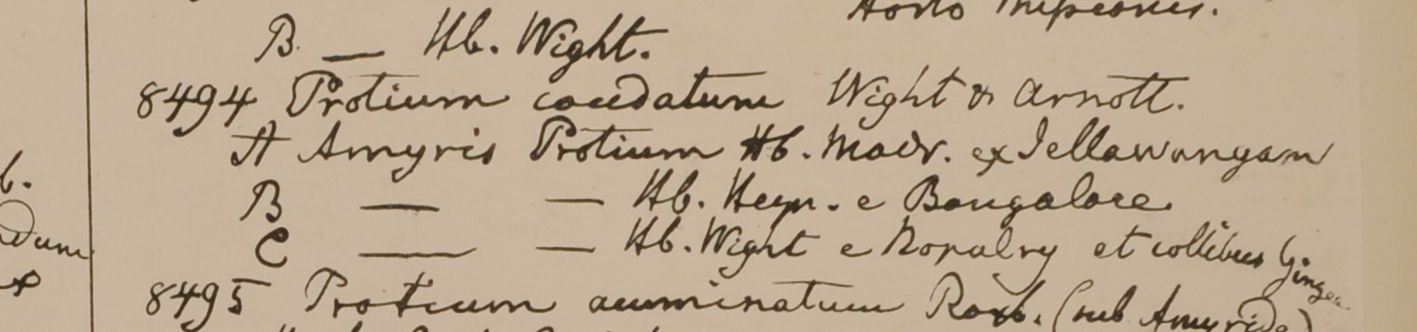 Horto
B — Hb. Wight.
8494 Protium caudatum Wight & Arnott.
A Amyris Protium Hb. Madr. ex Jellawungam
B — — Hb. Heyn. e Bangalore
C — — Hb. Wight e et collibus Gingee
8495 Protium acuminatum Roxb. (sub Amyride)
b.
dum